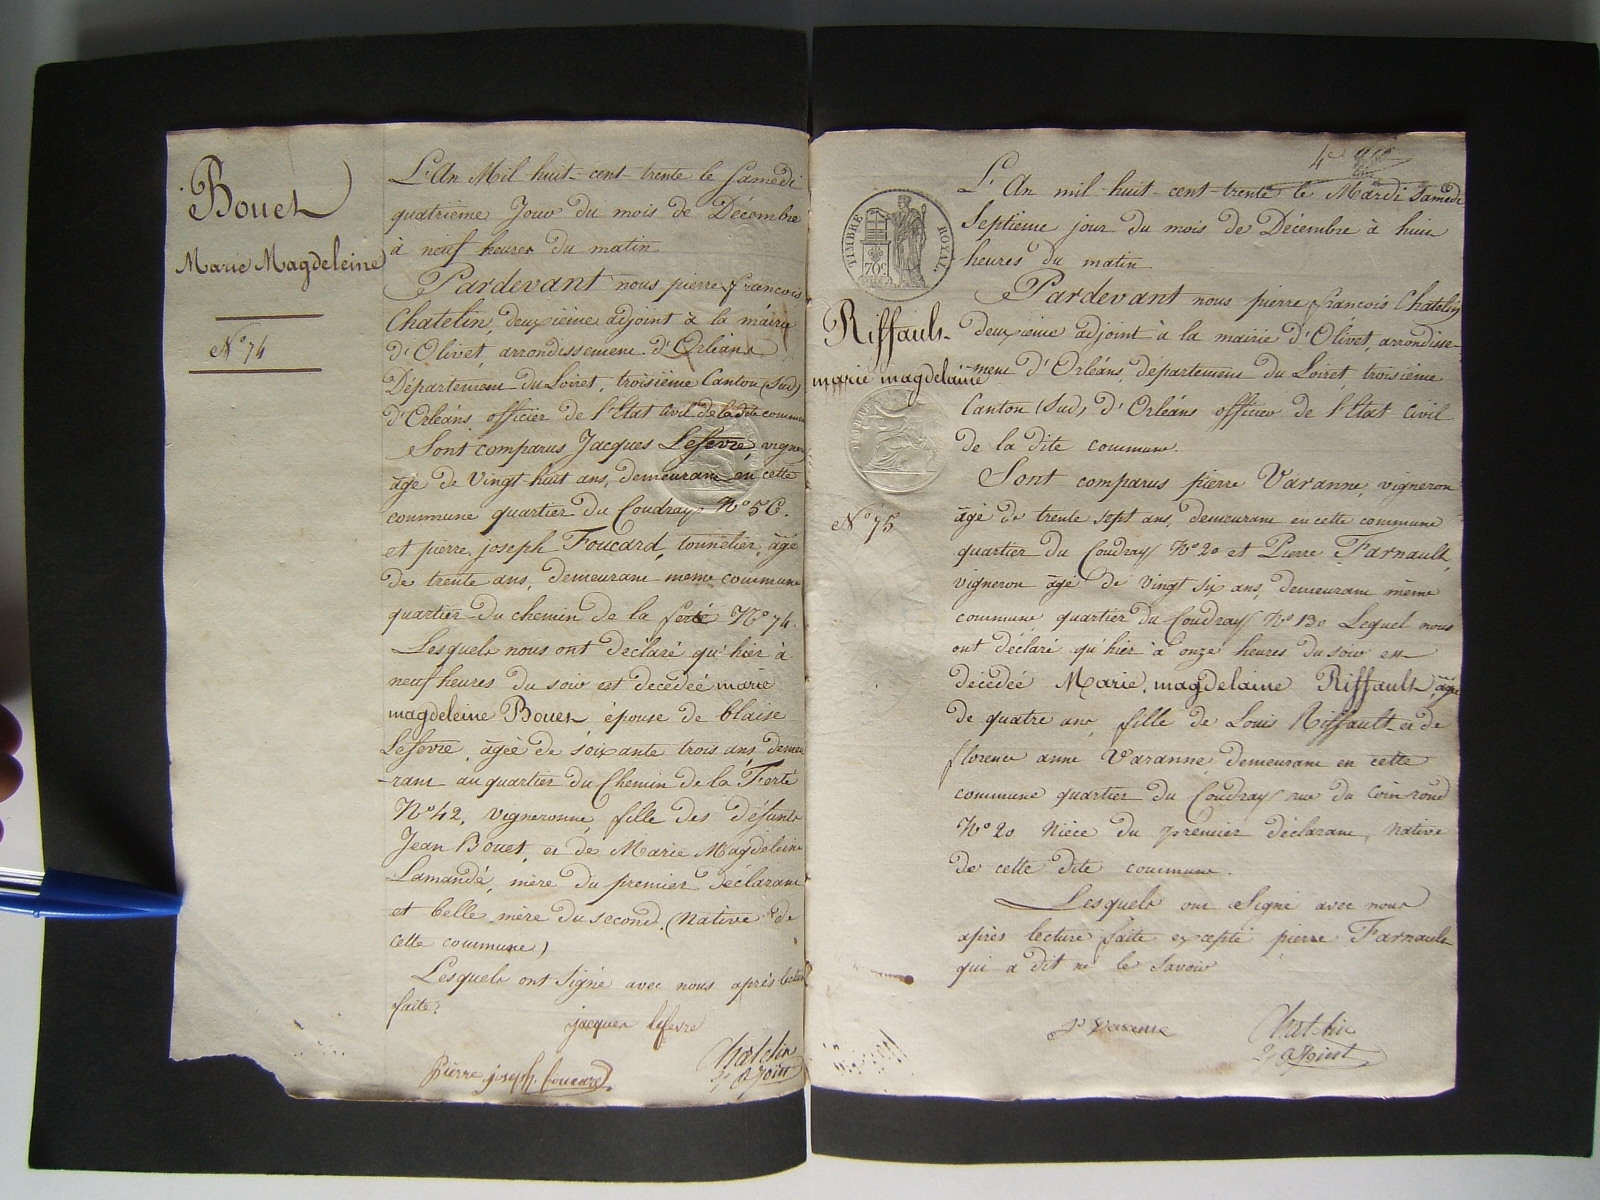 Bouet
Marie Magdeleine
N° 74
L'An Mil-huit-cent trente le Samedi
quatrième Jour du mois de Décembre
à neuf heures du matin
Pardevant nous pierre françois
Chatelin, deuxième adjoint à la mairie
d'Olivet, arrondissement d'Orléans,
Département du Loiret, troisième Canton (Sud)
d'Orléans officier de l'Etat Civil de la dite commune
Sont comparus Jacques Lefevre vigneron
âgé de Vingt-huit ans, demeurant en cette
commune quartier du Coudray N° 56.
et pierre joseph Foucard, tonnelier, âgé
de trente ans, demeurant même commune
quartier du chemin de la ferté N° 74.
Lesquels nous ont déclaré qu'hier à
neuf heures du soir est decédeé marie
magdeleine Bouet épouse de blaise
Lefevre, âgeé de soixante trois ans demeu
-rant au quartier du Chemin de la Ferté
N° 42, vigneronne, fille des défunts
Jean Bouet, et de Marie Magdeleine
Lamandé, mère du premier déclarant
et belle mère du second. (Native de
cette commune)
Lesquels ont signé avec nous après lecture
faite.
jacques lefevre
Pierre joseph foucard
Chatelin
2e adjoint
TIMBRE ROYAL
70c
Riffault
marie magdelaine
N° 75
L'An mil-huit-cent-trente le Mardi Samedi
Septième jour du mois de Décembre à huit
heures du matin
Pardevant nous pierre françois Chatelin
deuxième adjoint à la mairie d'Olivet, arrondisse-
ment d'Orléans, département du Loiret, troisième
Canton (Sud) d'Orléans officier de l'Etat Civil
de la dite commune.
Sont comparus pierre Varanne, vigneron
âgé de trente sept ans, demeurant en cette commune
quartier du Coudray N° 20 et Pierre Farnault,
vigneron âgé de vingt six ans, demeurant même
commune quartier du Coudray N° 130 Lequel nous
ont déclaré qu'hier à onze heures du soir est
décédeé Marie, magdelaine Riffault, âgée
de quatre ans, fille de Louis Riffault et de
florence anne Varanne demeurant en cette
commune quartier du Coudray rue du Coin rond
N° 20 Nièce du premier déclarant, native
de cette dite commune.
Lesquels ont Signé avec nous
après lecture faite excepté pierre Farnault
qui a dit ne le savoir
P Varanne
Chatelin
2e adjoint